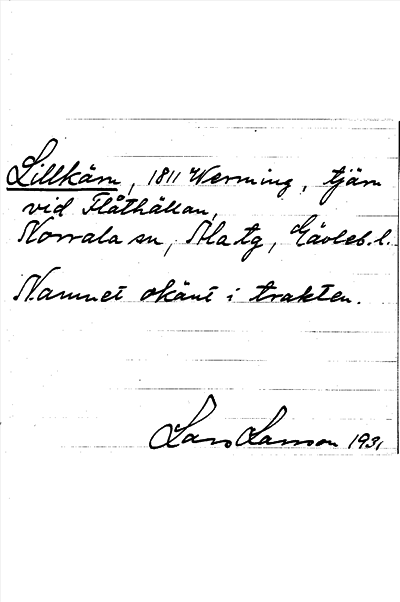 Lillkärn, 1811 Werming, tjärn
vid Flåthällan,
Norrala sn, Ala tg, Gävleb. l.
Namnet okänt i trakten.
Lars Larsson 1931